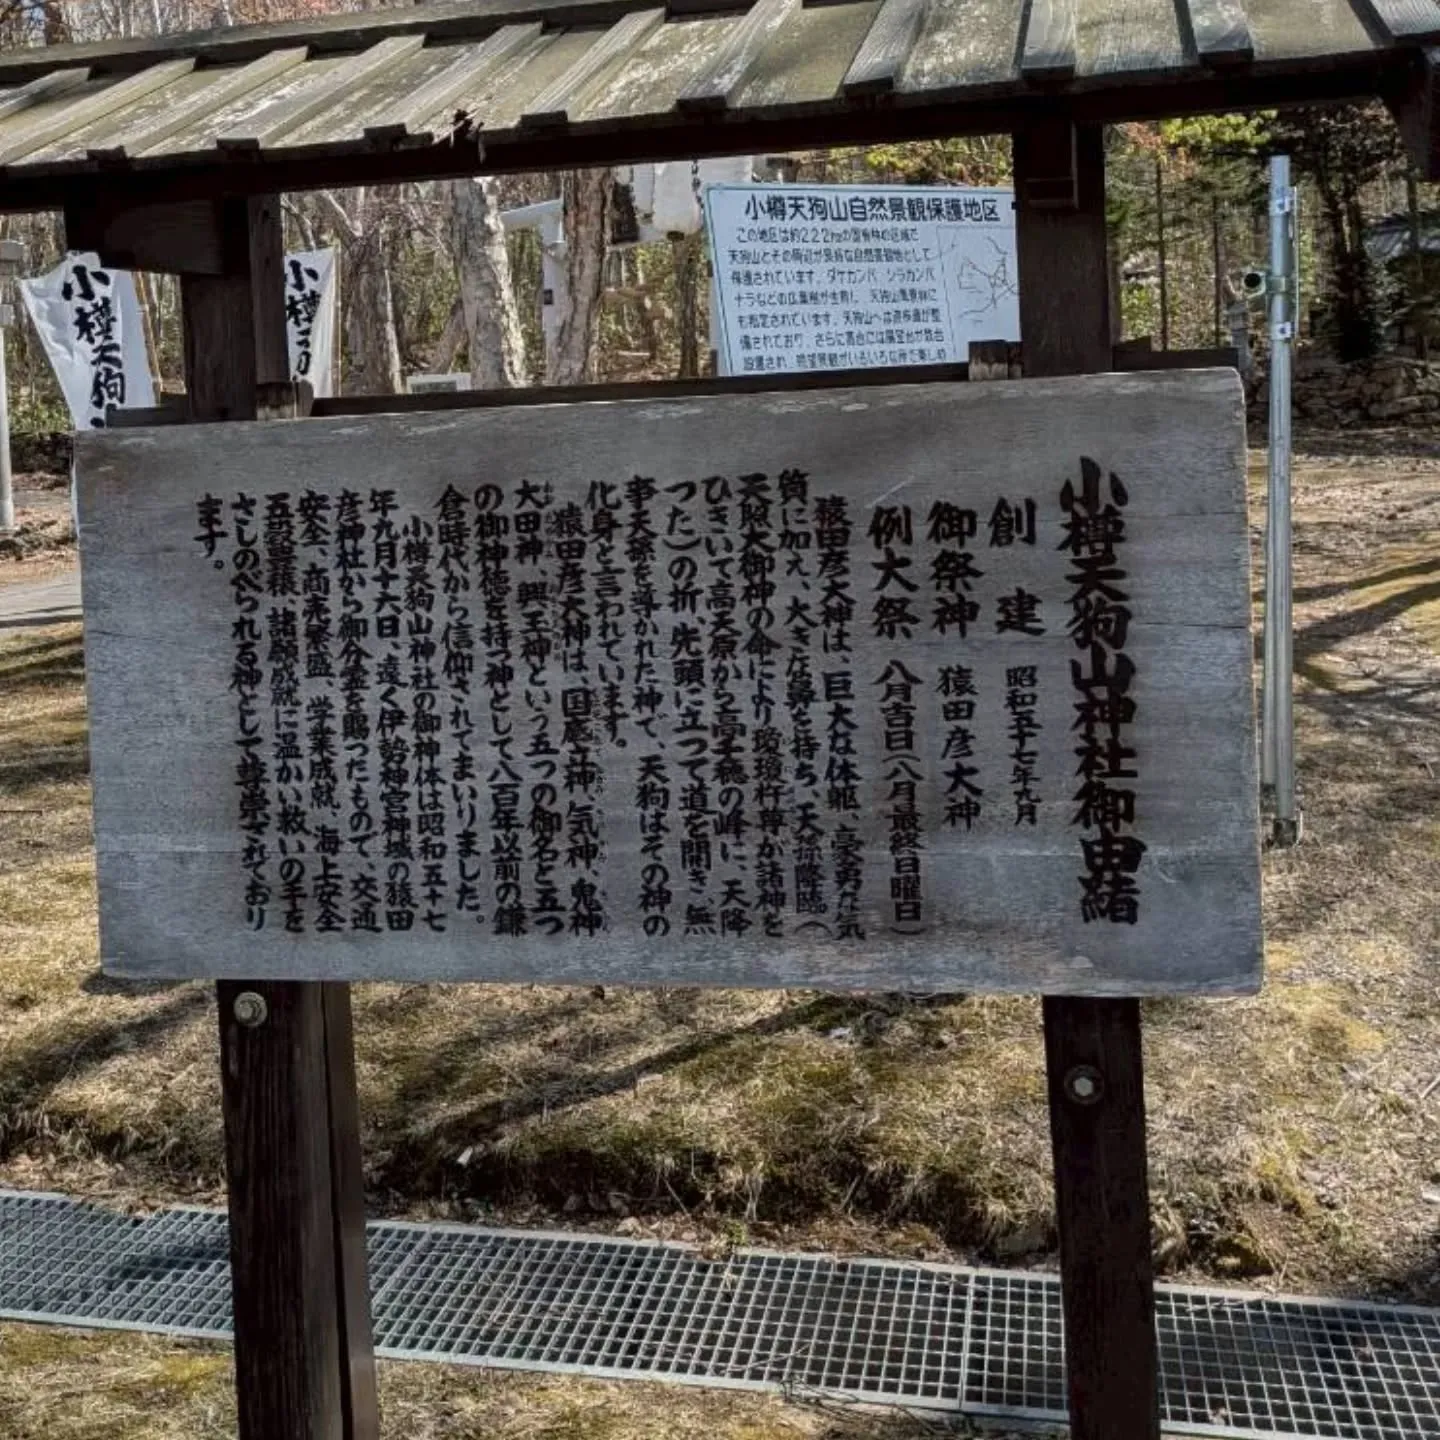 小樽天狗山自然景観保護地区
この地区は約222haの国有林の区域で
天狗山とその周辺が良好な自然景観地として
保護されています。ダケカンバ、シラカンバ
ナラなどの広葉樹が生育し、天狗山風景林に
も指定されています。天狗山へは遊歩道が整
備されており、さらに高台には展望台が数台
設置され、眺望景観がいろいろな所で楽しめ
小樽天狗
小樽天狗山神社御由緒
創建 昭和五十七年九月
御祭神 猿田彦大神
例大祭 八月吉日(八月最終日曜日)
猿田彦大神は、巨大な体躯、豪勇な気
質に加え、大きな鼻を持ち、天孫降臨(
天照大御神の命により瓊瓊杵尊が諸神を
ひきいて高天原から高千穂の峰に、天降
つた)の折、先頭に立つて道を開き、無
事天孫を導かれた神で、天狗はその神の
化身と言われています。
猿田彦大神は、国底立神、気神、鬼神
大田神、興玉神という五つの御名と五つ
の御神徳を持つ神として八百年以前の鎌
倉時代から信仰されてまいりました。
小樽天狗山神社の御神体は昭和五十七
年九月十六日、遠く伊勢神宮神域の猿田
彦神社から御分霊を賜つたもので、交通
安全、商売繁盛、学業成就、海上安全
五穀豊穣、諸願成就に温かい救いの手を
さしのべられる神として尊崇されており
ます。